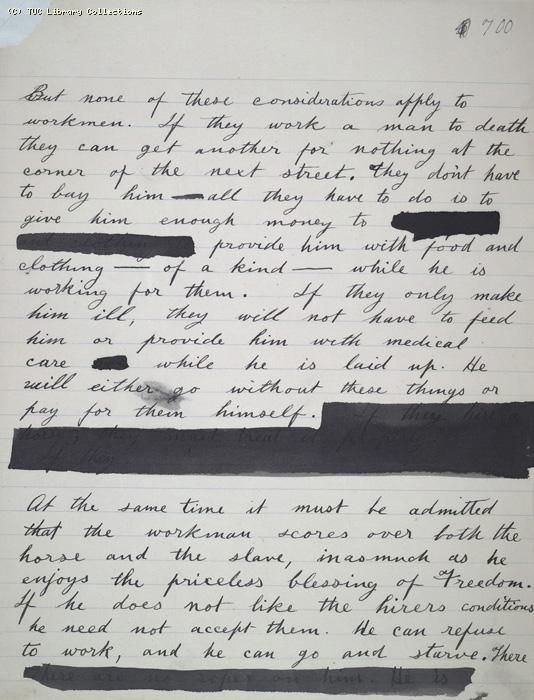 (C) TUC Library Collections
700
But none of these considerations apply to
workmen. If they work a man to death
they can get another for nothing at the
corner of the next street. They don't have
to bay him — all they have to do is to
give him enough money to
provide him with food and
clothing — of a kind — while he is
working for them. If they only make
him ill, they will not have to feed
him or provide him with medical
care while he is laid up. He
will either go without these things or
pay for them himself. If they hire a
horse, they must treat it properly
At the same time it must be admitted
that the workman scores over both the
horse and the slave, inasmuch as he
enjoys the priceless blessing of Freedom.
If he does not like the hirers conditions
he need not accept them. He can refuse
to work, and he can go and starve. There
there are no ropes on him. He is